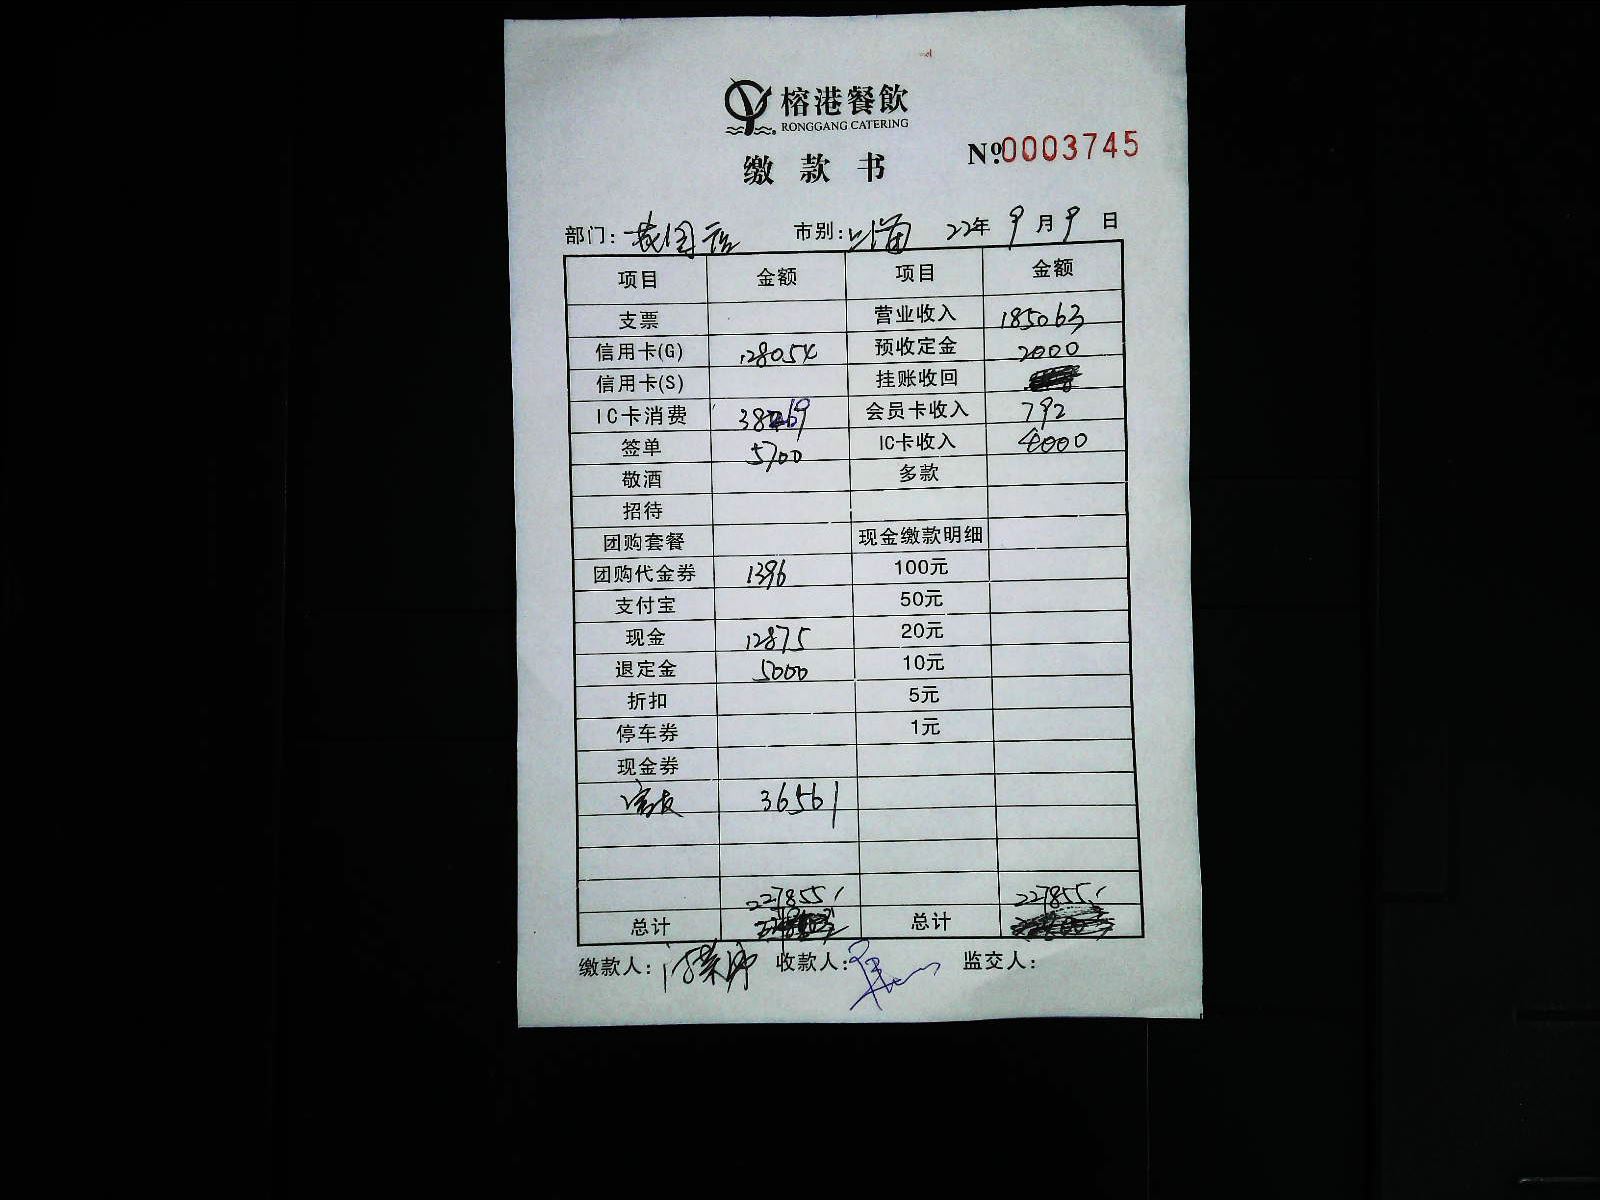 榕港餐飲
RONGGANG CATERING
缴款书 №0003745
部门: 市别: 22年 9月9日
项目 金额 项目 金额
支票 营业收入 185063
信用卡(G) 128054 预收定金 2000
信用卡(S) 挂账收回
IC卡消费 会员卡收入 792
签单 5700 IC卡收入 4000
敬酒 多款
招待
团购套餐 现金缴款明细
团购代金券 1396 100元
支付宝 50元
现金 12875 20元
退定金 5000 10元
折扣 5元
停车券 1元
现金券
36561
227855 227855
总计 总计
缴款人: 收款人: 监交人: